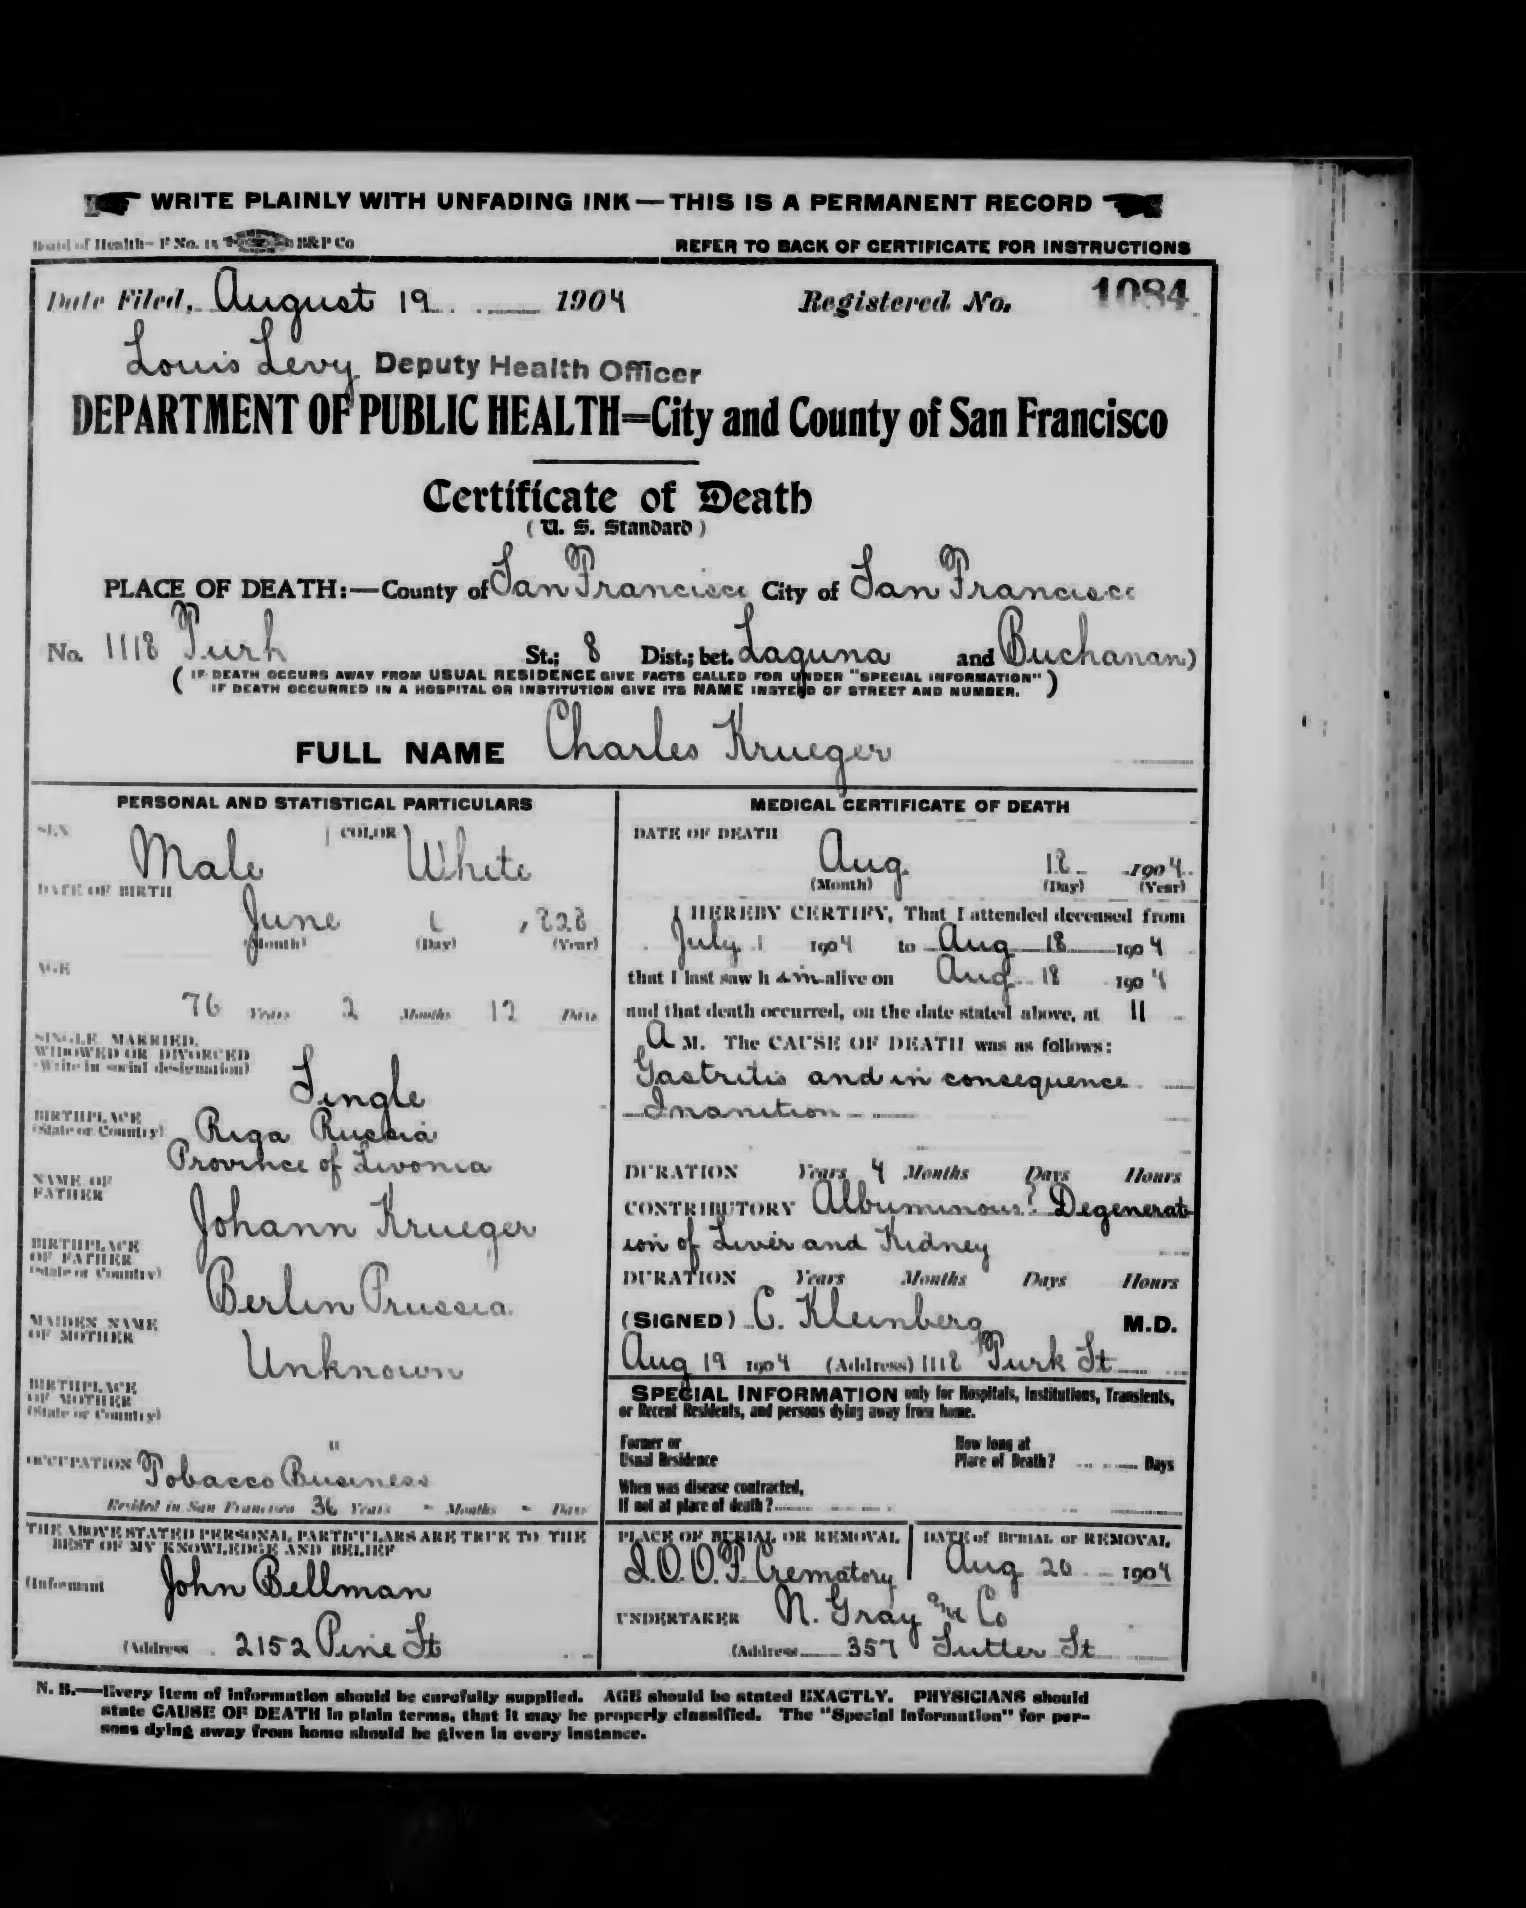 WRITE PLAINLY WITH UNFADING INK—THIS IS A PERMANENT RECORD
Board of Health—F No. 15 B&P Co REFER TO BACK OF CERTIFICATE FOR INSTRUCTIONS
Date Filed, August 19 1904 Registered No. 1084
Louis Levy Deputy Health Officer
DEPARTMENT OF PUBLIC HEALTH=City and County of San Francisco
Certificate of Death
(U. S. Standard)
PLACE OF DEATH:—County of San Francisco City of San Francisco
No. 1118 Turk St.; 8 Dist.; bet. Laguna and Buchanan)
( IF DEATH OCCURS AWAY FROM USUAL RESIDENCE GIVE FACTS CALLED FOR UNDER "SPECIAL INFORMATION" )
IF DEATH OCCURRED IN A HOSPITAL OR INSTITUTION GIVE ITS NAME INSTEAD OF STREET AND NUMBER.
FULL NAME Charles Krueger
PERSONAL AND STATISTICAL PARTICULARS
SEX Male COLOR White
DATE OF BIRTH
June 1 , 828
(Month) (Day) (Year)
AGE
76 Years 2 Months 17 Days
SINGLE, MARRIED,
WIDOWED OR DIVORCED
(Write in social designation)
Single
BIRTHPLACE
(State or Country)
Riga Russia
Province of Livonia
NAME OF
FATHER
Johann Krueger
BIRTHPLACE
OF FATHER
(State or Country)
Berlin Prussia
MAIDEN NAME
OF MOTHER
Unknown
BIRTHPLACE
OF MOTHER
(State or Country)
"
OCCUPATION Tobacco Business
Resided in San Francisco 36 Years - Months - Days
THE ABOVE STATED PERSONAL PARTICULARS ARE TRUE TO THE
BEST OF MY KNOWLEDGE AND BELIEF
(Informant John Bellman
(Address 2152 Pine St
MEDICAL CERTIFICATE OF DEATH
DATE OF DEATH
Aug. 18 1904
(Month) (Day) (Year)
I HEREBY CERTIFY, That I attended deceased from
July 1 1904 to Aug 18 1904
that I last saw h im alive on Aug 18 1904
and that death occurred, on the date stated above, at 11
A M. The CAUSE OF DEATH was as follows:
Gastritis and in consequence
Inanition
DURATION Years 4 Months Days Hours
CONTRIBUTORY Albuminous? Degenerat-
ion of Liver and Kidney
DURATION Years Months Days Hours
(SIGNED) C. Kleinberg M.D.
Aug 19 1904 (Address) 1118 Turk St
SPECIAL INFORMATION only for Hospitals, Institutions, Transients,
or Recent Residents, and persons dying away from home.
Former or
Usual Residence
How long at
Place of Death? Days
When was disease contracted,
If not at place of death?
PLACE OF BURIAL OR REMOVAL
I.O.O.F. Crematory
DATE of BURIAL or REMOVAL
Aug 20 1904
UNDERTAKER N. Gray and Co
(Address 357 Sutter St
N. B.—Every item of information should be carefully supplied. AGE should be stated EXACTLY. PHYSICIANS should
state CAUSE OF DEATH in plain terms, that it may be properly classified. The "Special Information" for per-
sons dying away from home should be given in every instance.